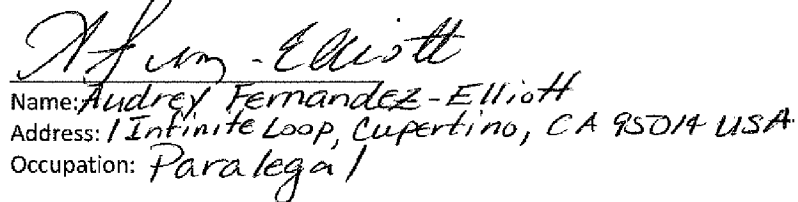 A Fern-Elliott
Name: Audrey Fernandez-Elliott
Address: 1 Infinite Loop, Cupertino, CA 95014 USA
Occupation: Paralegal